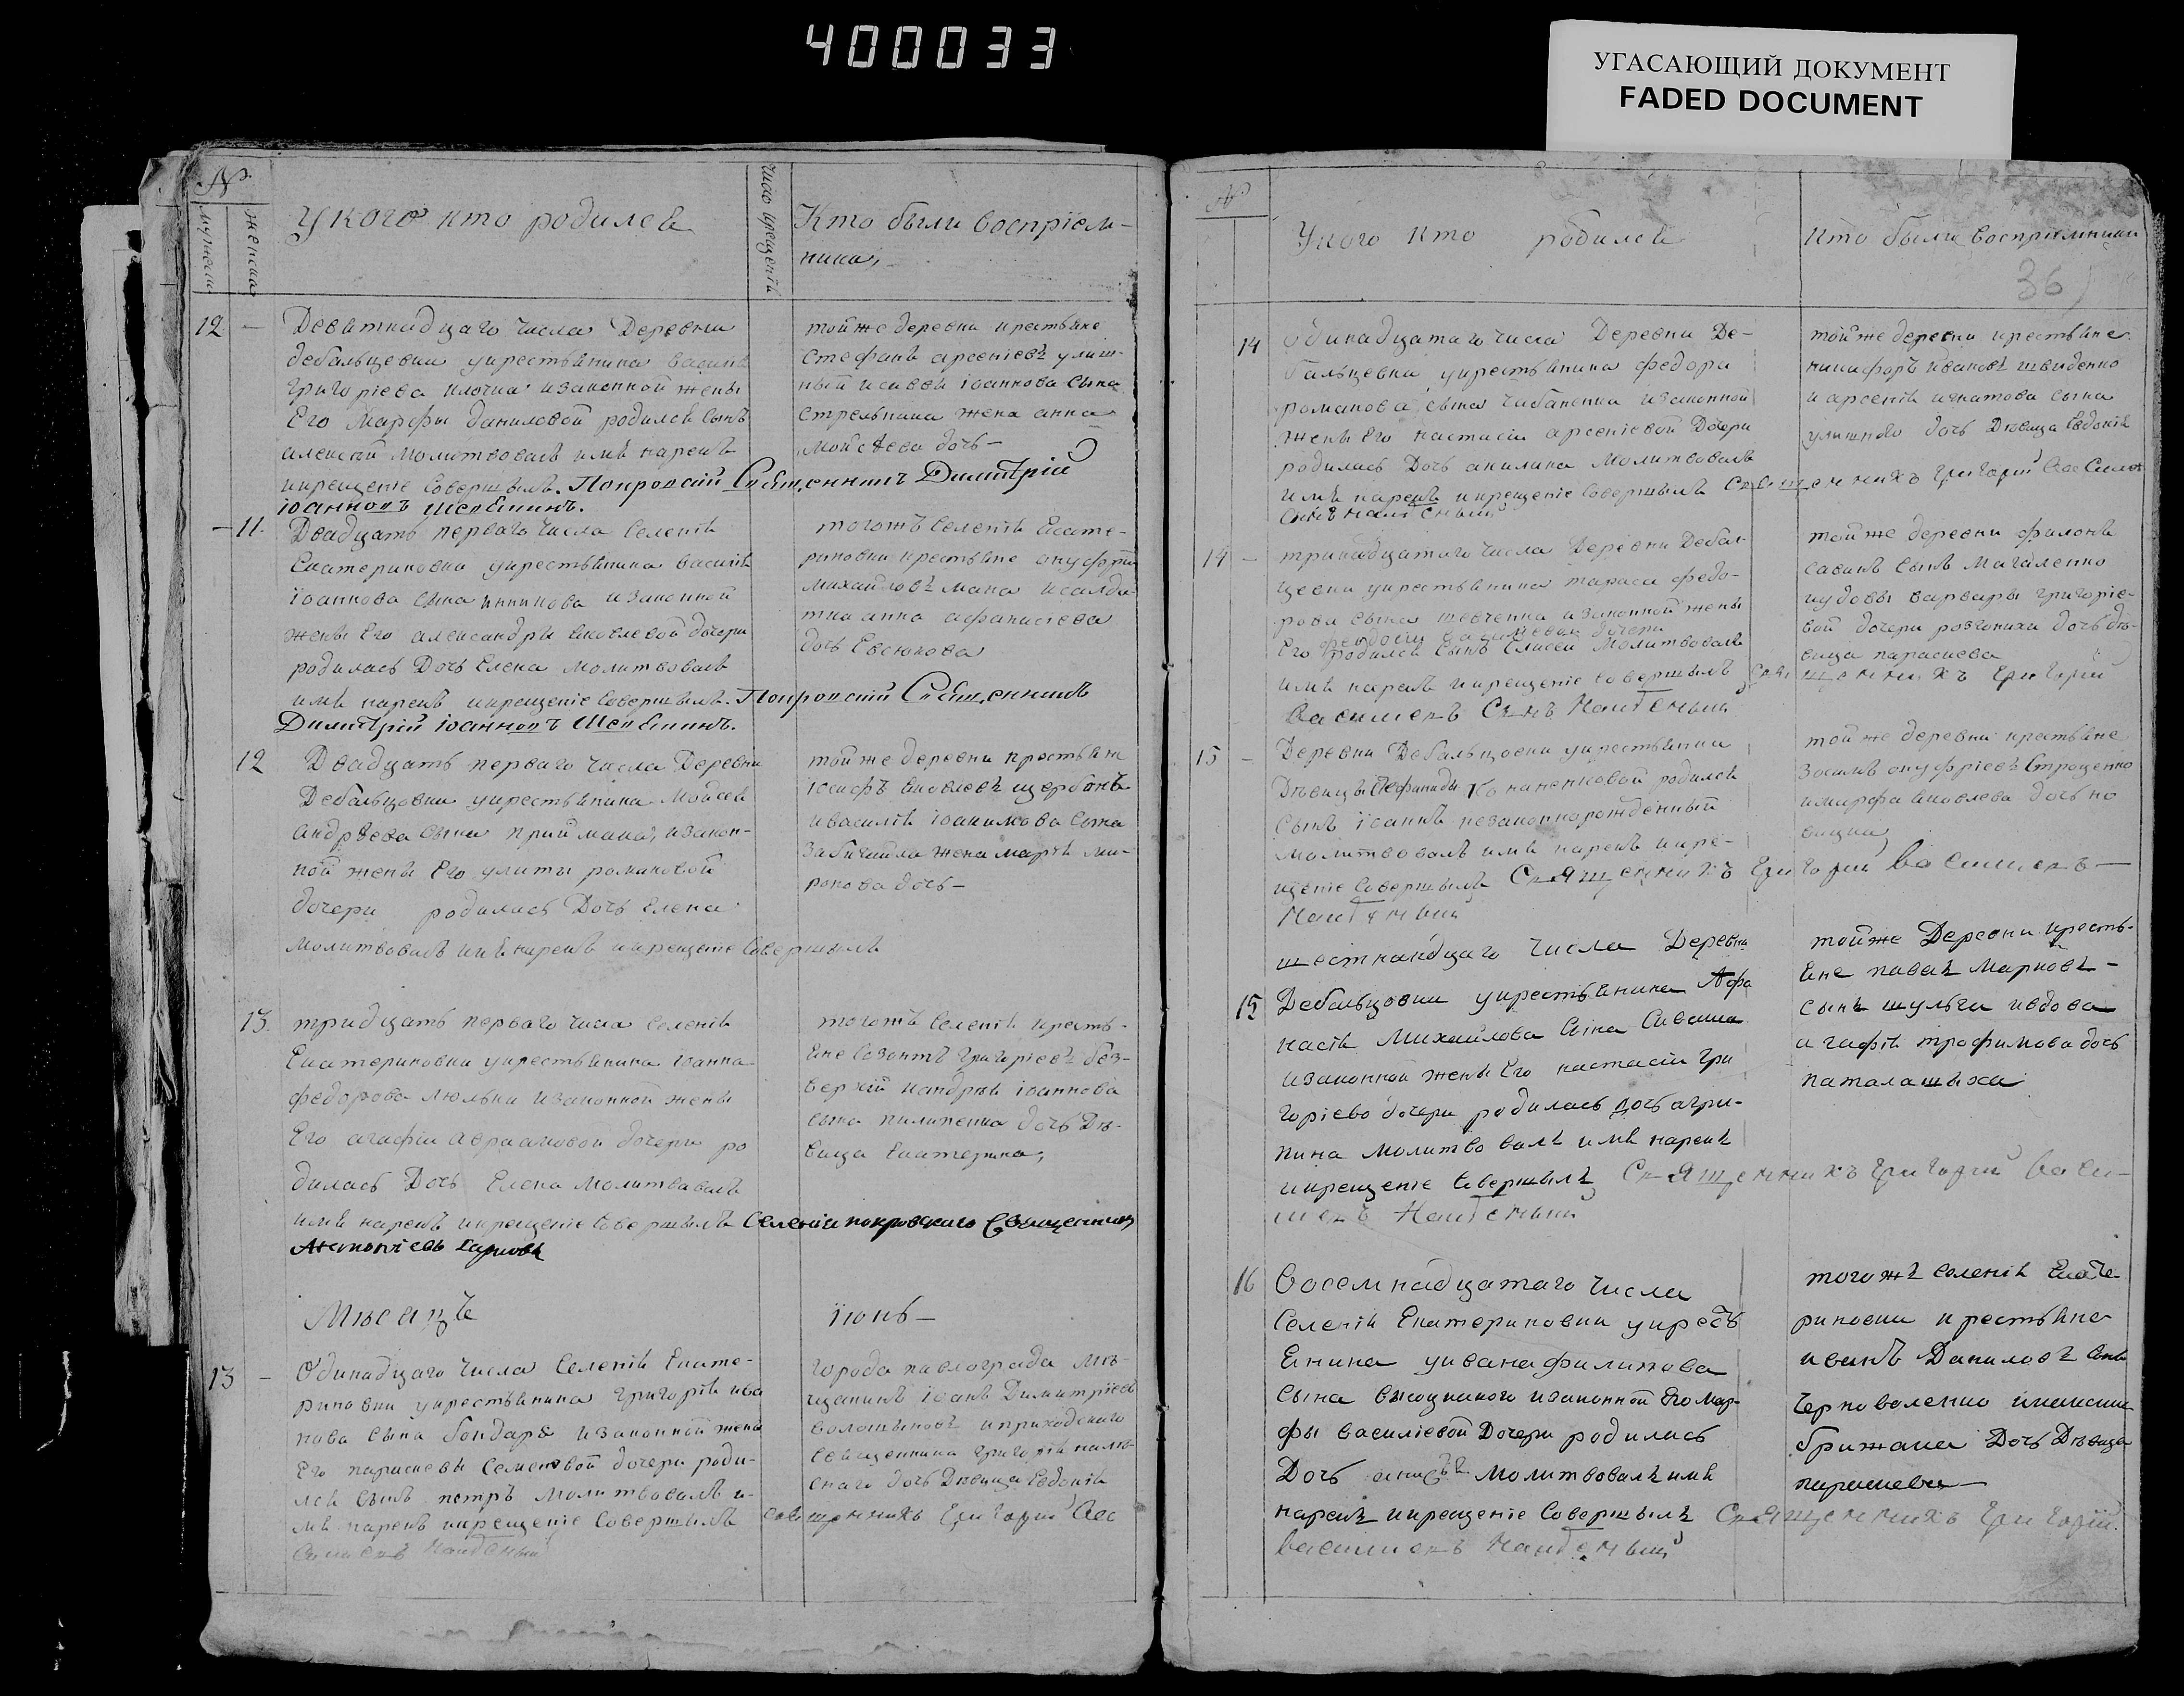 400033
УГАСАЮЩИЙ ДОКУМЕНТ
FADED DOCUMENT
№
мужеска
женска
У кого кто родился
число крещеній
Кто были воспріем-
ники,
12 —
Девятнадцаго числа Деревни
дебальцевки укрестьянина василя
григоріева изаконной жены
Его Марфы даниловой родился сынъ
алексей молитвовалъ имя нарекъ
икрещеніе Совершылъ. Покровскій Священникъ Димитрій
іоанновъ
тойже деревни крестьяне
стефанъ арсеніевъ улиш-
ный исавы іоаннова сына
стрельника жена анна
Мойсѣева дочь —
— 11.
Двадцать перваго числа Селенія
Екатериновки укрестьянина василія
іоаннова сына изаконной
жены Его александры яковлевой дочери
родилась Дочь Елена молитвовалъ
имя нарекъ икрещеніе Совершылъ. Покровскій Священникъ
Димитрій іоанновъ
тогожъ Селенія Екате-
риновки крестьяне онуфрій
михайловъ мака исалда
тка анна афанасіева
дочь Евсюкова
12
Двадцать перваго числа Деревни
Дебальцовки укрестьянина Мойсея
андрѣева сына приймака, изакон-
ной жены Его улиты романовой
дочери родилась Дочь Елена
молитвовалъ имя нарекъ икрещеніе Совершылъ
тойже деревни крестьяне
іосифъ яковлевъ щербакъ
ивасилія іоакимова сына
жена марія ми-
ронова дочь —
13.
тридцать перваго числа Селенія
Екатериновки укрестьянина іоанна
федорова люльки изаконной жены
Его агафіи авраамовой дочери ро
дилась Дочь Елена молитвавалъ
имя нарекъ икрещеніе Совершылъ Селенія покровскаго Священникъ
тогожъ Селенія кресть-
яне Созонтъ григоріевъ без-
верхій иандрея іоаннова
сына пилипенка дочь Дѣ-
вица Екатерина,
Мѣсяцъ
іюнь —
13 —
Одинадцаго числа Селенія Екате-
риновки укрестьянина григорія ива
нова сына бондаря изаконной жены
Его параскевы Семеновой дочери роди-
лся сынъ петръ молитвовалъ и-
мя нарекъ икрещеніе Совершылъ Священникъ Григорій Вас
сильевъ
города павлограда мѣ-
щанинъ іоанъ Димитріевъ
волошыновъ иприходскаго
священника григорія
дочь Дѣвица Евдокія
№
У кого кто родился
Кто были воспріемники
36
14
одинадцатаго числа Деревни Де-
бальцевки укрестьянина федора
романова сына чабаненка изаконной
жены Его настасіи арсеніевой Дочери
родилась Дочь акилина молитвовалъ
имя нарекъ икрещеніе Совершылъ Священникъ Григорій
тойже деревни крестьяне
никифоръ ивановъ швиденко
иарсенія игнатова сына
улишного дочь Дѣвица Евдокія
14 —
тринадцатаго числа Деревни Дебал-
цевки укрестьянина тараса федо-
рова сына шевченка изаконной жены
Его феодосіи дочери
родился сынъ Елисей молитвовалъ
имя нарекъ икрещеніе совершылъ Священникъ Григорій
Васильевъ Сынъ
тойже деревни филонъ
савинъ сынъ Магаленко
иудовы варвары григоріе-
вой дочери дочь дѣ-
вица параскева
15 —
Деревни Дебальцовки укрестьянки
Дѣвицы родился
Сынъ іоаннъ незаконнорожденный
молитвовалъ имя нарекъ икре-
щеніе Совершылъ Священникъ Григорій Васильевъ —
тойже деревни крестьяне
онуфріевъ Строценко
имарфа яковлева дочь
15
шестнандцаго числа Деревни
Дебальцовки укрестьянина Афа
насія Михайлова Сына Сиваша
изаконной жены Его настасіи гри
горіево дочери родилась дочь агри-
пина молитво валъ имя нарекъ
икрещеніе Совершылъ Священникъ Григорій Васи-
льевъ
тойже Деревни кресть-
яне павелъ Марковъ —
сынъ шульга ивдова
агафія трофимова дочь
паталашыха
16
Восемнадцатаго числа
Селенія Екатериновки укресть
янина уивана филипова
сына высоцкого изаконной Его мар-
фы василіевой Дочери родилась
Дочь молитвовалъ имя
нарекъ икрещеніе Совершылъ Священникъ Григорій
васильевъ
тогожъ селенія Екате
риновки крестьяне
иванъ Даниловъ сынъ
Дочь Дѣвица
параскева —